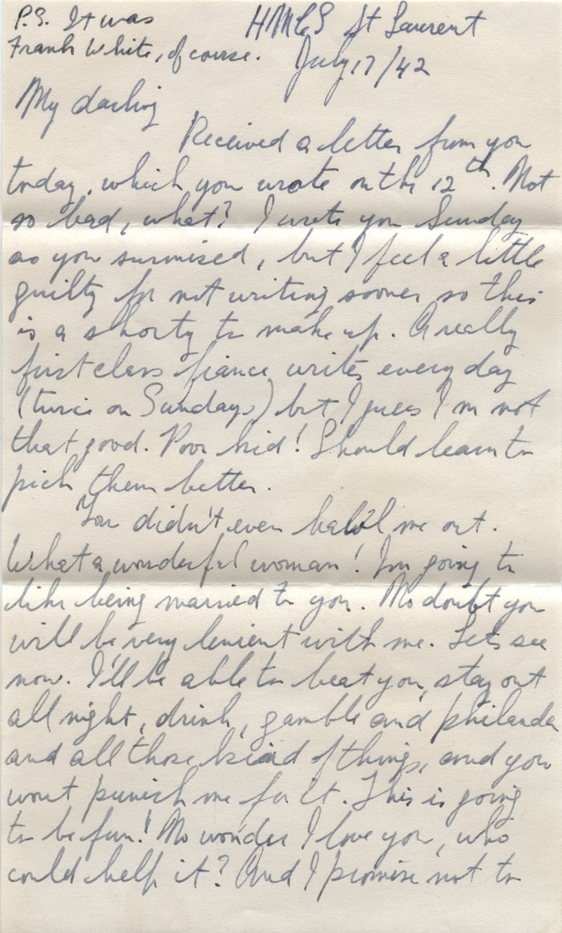 P.S. It was
Frank White, of course.
HMCS St Laurent
July 17/42
My darling
Received a letter from you
today, which you wrote on the 12th. Not
so bad, what? I wrote you Sunday
as you surmised, but I feel a little
guilty for not writing sooner so this
is a shorty to make up. A really
first class fiance writes every day
(twice on Sundays) but I guess I'm not
that good. Poor kid! Should learn to
pick them better.
You didn't even bawl me out.
What a wonderful woman! I'm going to
like being married to you. No doubt you
will be very lenient with me. Lets see
now. I'll be able to beat you, stay out
all night, drink, gamble and philander
and all those kind of things, and you
wont punish me for it. This is going
to be fun! No wonder I love you, who
could help it? And I promise not to